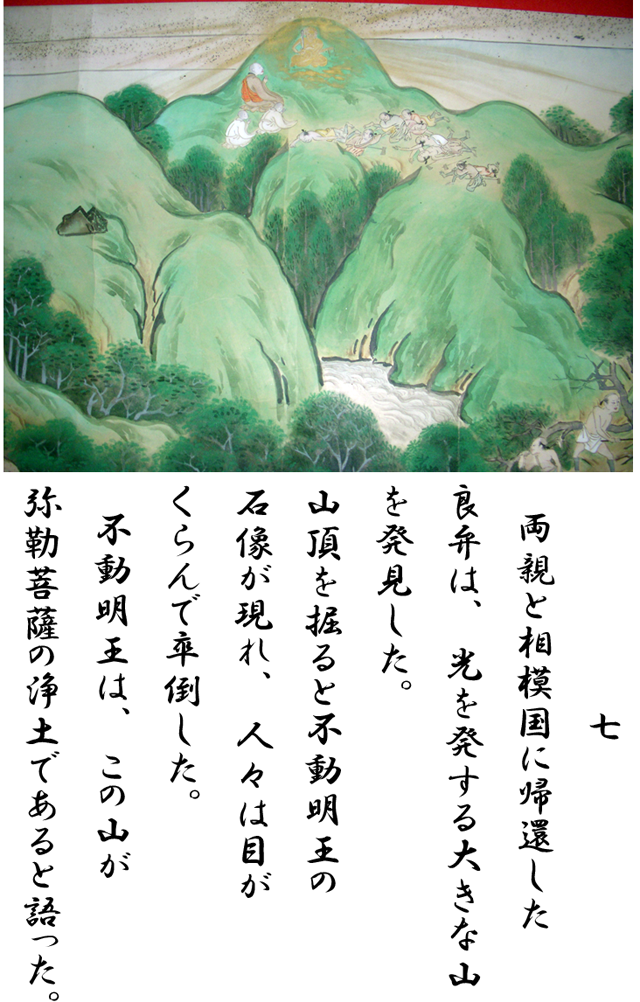 七
両親と相模国に帰還した
良弁は、光を発する大きな山
を発見した。
山頂を掘ると不動明王の
石像が現れ、人々は目が
くらんで卒倒した。
不動明王は、この山が
弥勒菩薩の浄土であると語った。